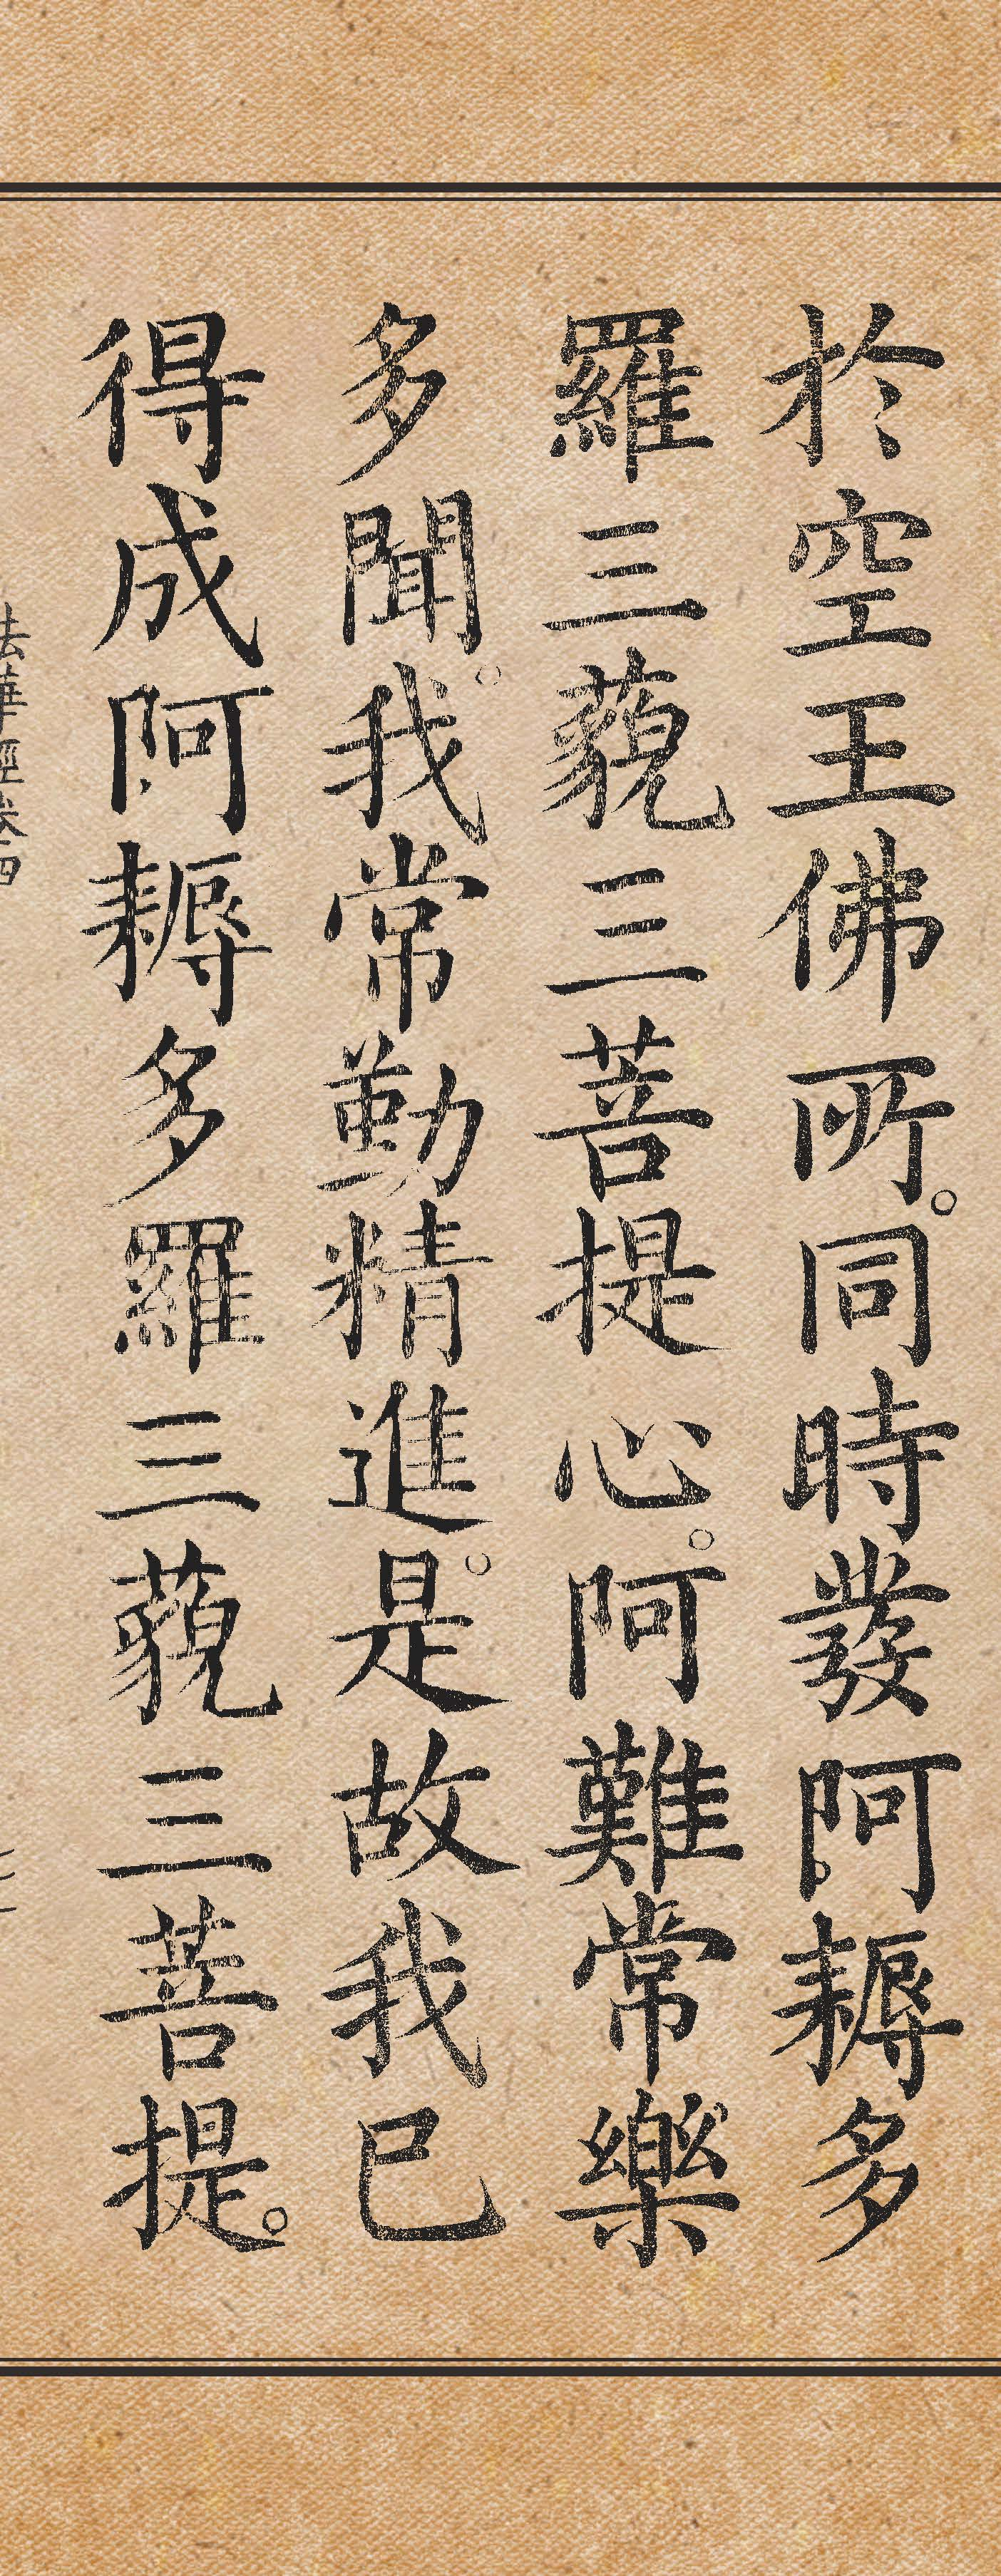 於空王佛所。同時發阿耨多
羅三藐三菩提心。阿難常樂
多聞。我常勤精進。是故我已
得成阿耨多羅三藐三菩提。
法華經卷四